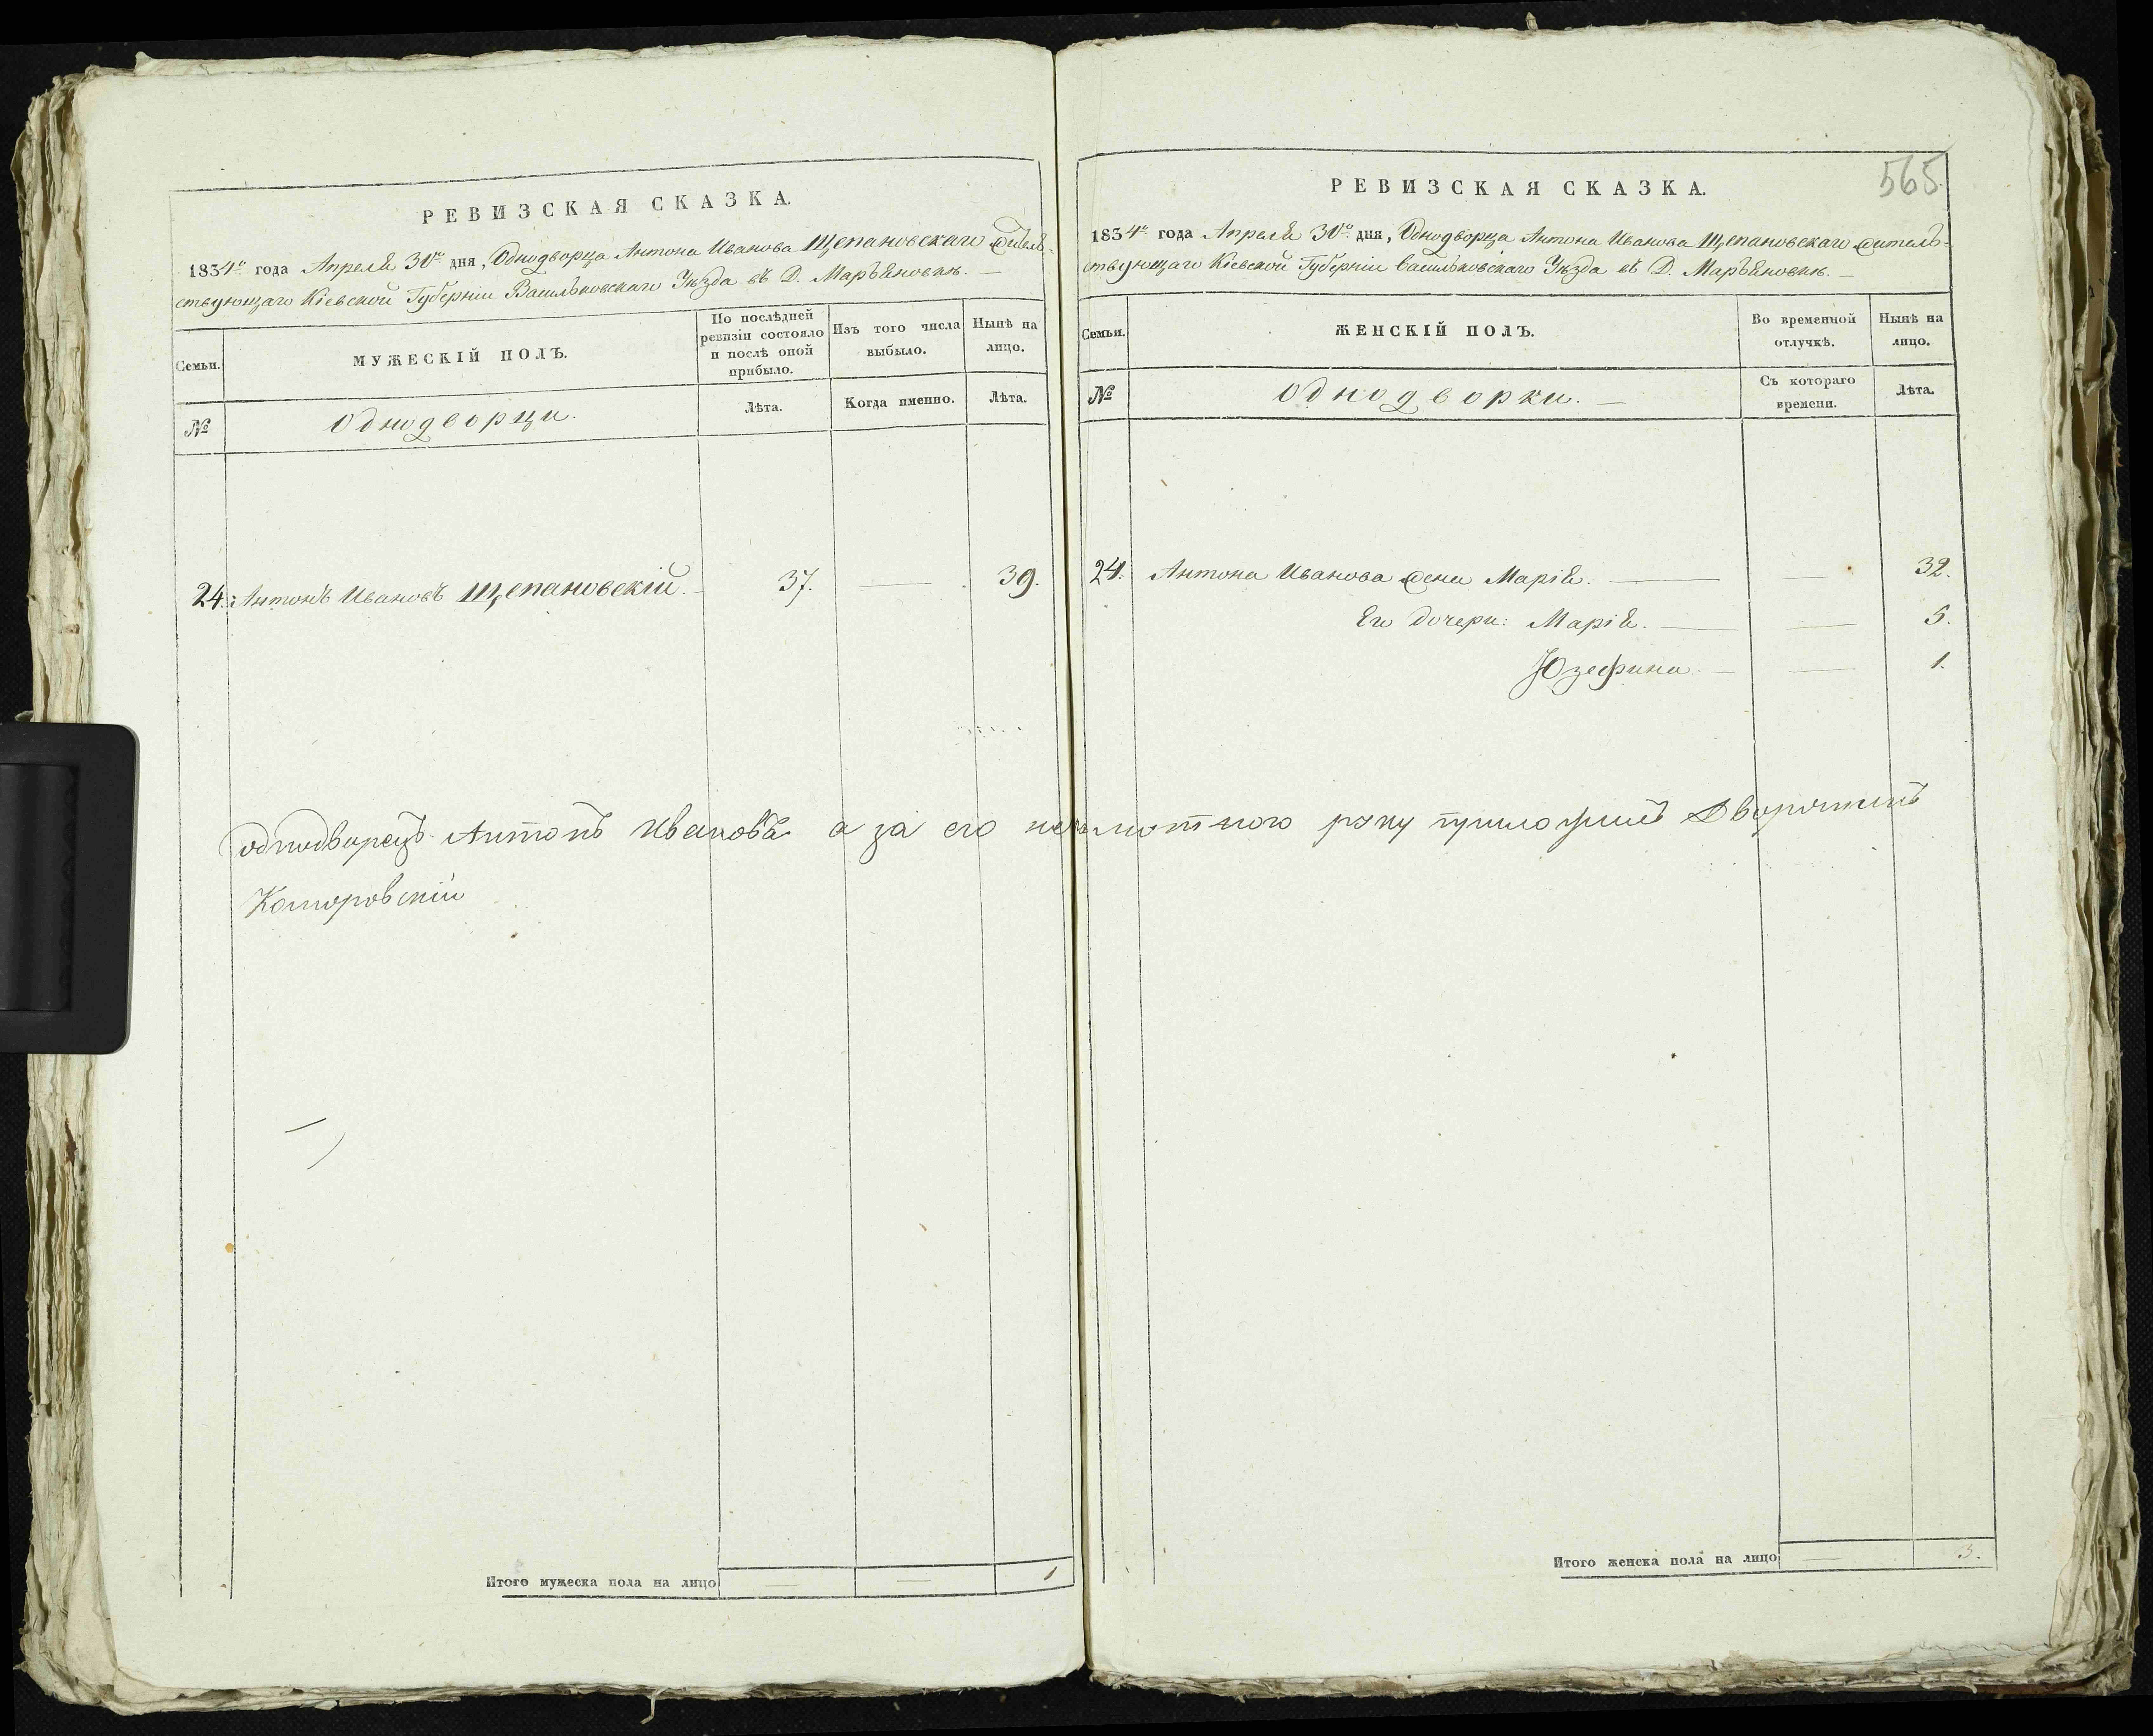 РЕВИЗСКАЯ СКАЗКА.
1834го года Апреля 30го дня, Однодворца Антона Иванова Щепановскаго Житель-
ствующаго Кіевской Губерніи Васильковскаго Уѣзда въ Д. Маръяновкѣ. —
Семьи.
МУЖЕСКІЙ ПОЛЪ.
По послѣдней ревизіи состояло и послѣ оной прибыло.
Изъ того числа выбыло.
Нынѣ на лицо.
№
Однодворци.
Лѣта.
Когда именно.
Лѣта.
24. Антонъ Ивановъ Щепановскій. 37. — 39.
однодворецъ Антонъ Ивановъ а за его неграмотного руку приложилъ Дворянинъ
Коморовскій
Итого мужеска пола на лицо — — 1
565.
РЕВИЗСКАЯ СКАЗКА.
1834го года Апреля 30го дня, Однодворца Антона Иванова Щепановскаго Житель-
ствующаго Кіевской Губерніи Васильковскаго Уѣзда въ Д. Маръяновкѣ. —
Семьи.
ЖЕНСКІЙ ПОЛЪ.
Во временной отлучкѣ.
Нынѣ на лицо.
№
Однодворки. —
Съ котораго времени.
Лѣта.
24. Антона Иванова Жена Марія. — — 32.
Его дочери: Марія. — — 5.
Юзефина — — 1.
Итого женска пола на лицо — 3.